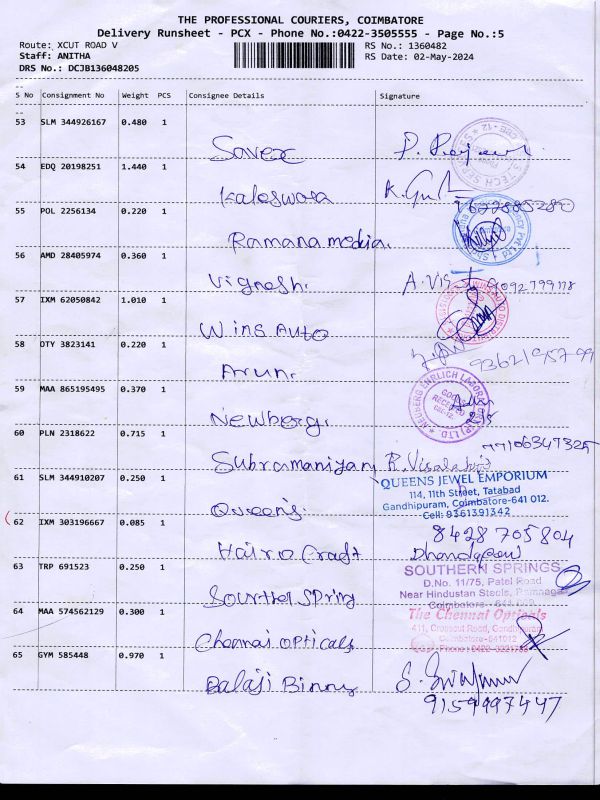 THE PROFESSIONAL COURIERS, COIMBATORE
Delivery Runsheet - PCX - Phone No.:0422-3505555 - Page No.:5
Route: XCUT ROAD V RS No.: 1360482
Staff: ANITHA RS Date: 02-May-2024
DRS No.: DCJB136048205
S No Consignment No Weight PCS Consignee Details Signature
53 SLM 344926167 0.480 1
Savex
54 EDQ 20198251 1.440 1
Kaleswara
55 POL 2256134 0.220 1
Ramana media.
56 AMD 28405974 0.360 1
Vignesh. A. Vis
57 IXM 62050842 1.010 1
Wins Auto
58 OTY 3823141 0.220 1
Arun.
59 MAA 865195495 0.370 1
Newberg.
60 PLN 2318622 0.715 1
Subramaniyan
61 SLM 344910207 0.250 1
QUEENS JEWEL EMPORIUM
114, 11th Street, Tatabad
Gandhipuram, Coimbatore-641 012.
Cell: 9361391342
Queens
62 IXM 303196667 0.085 1
8428705804
Hair o Craft
63 TRP 691523 0.250 1
SOUTHERN SPRINGS
D.No. 11/75, Patel Road
Near Hindustan Steels,
Sourthel Spring
64 MAA 574562129 0.300 1
The Chennai Opticals
Chennai opticals
65 GYM 585448 0.970 1
Balaji Binny
9159997447